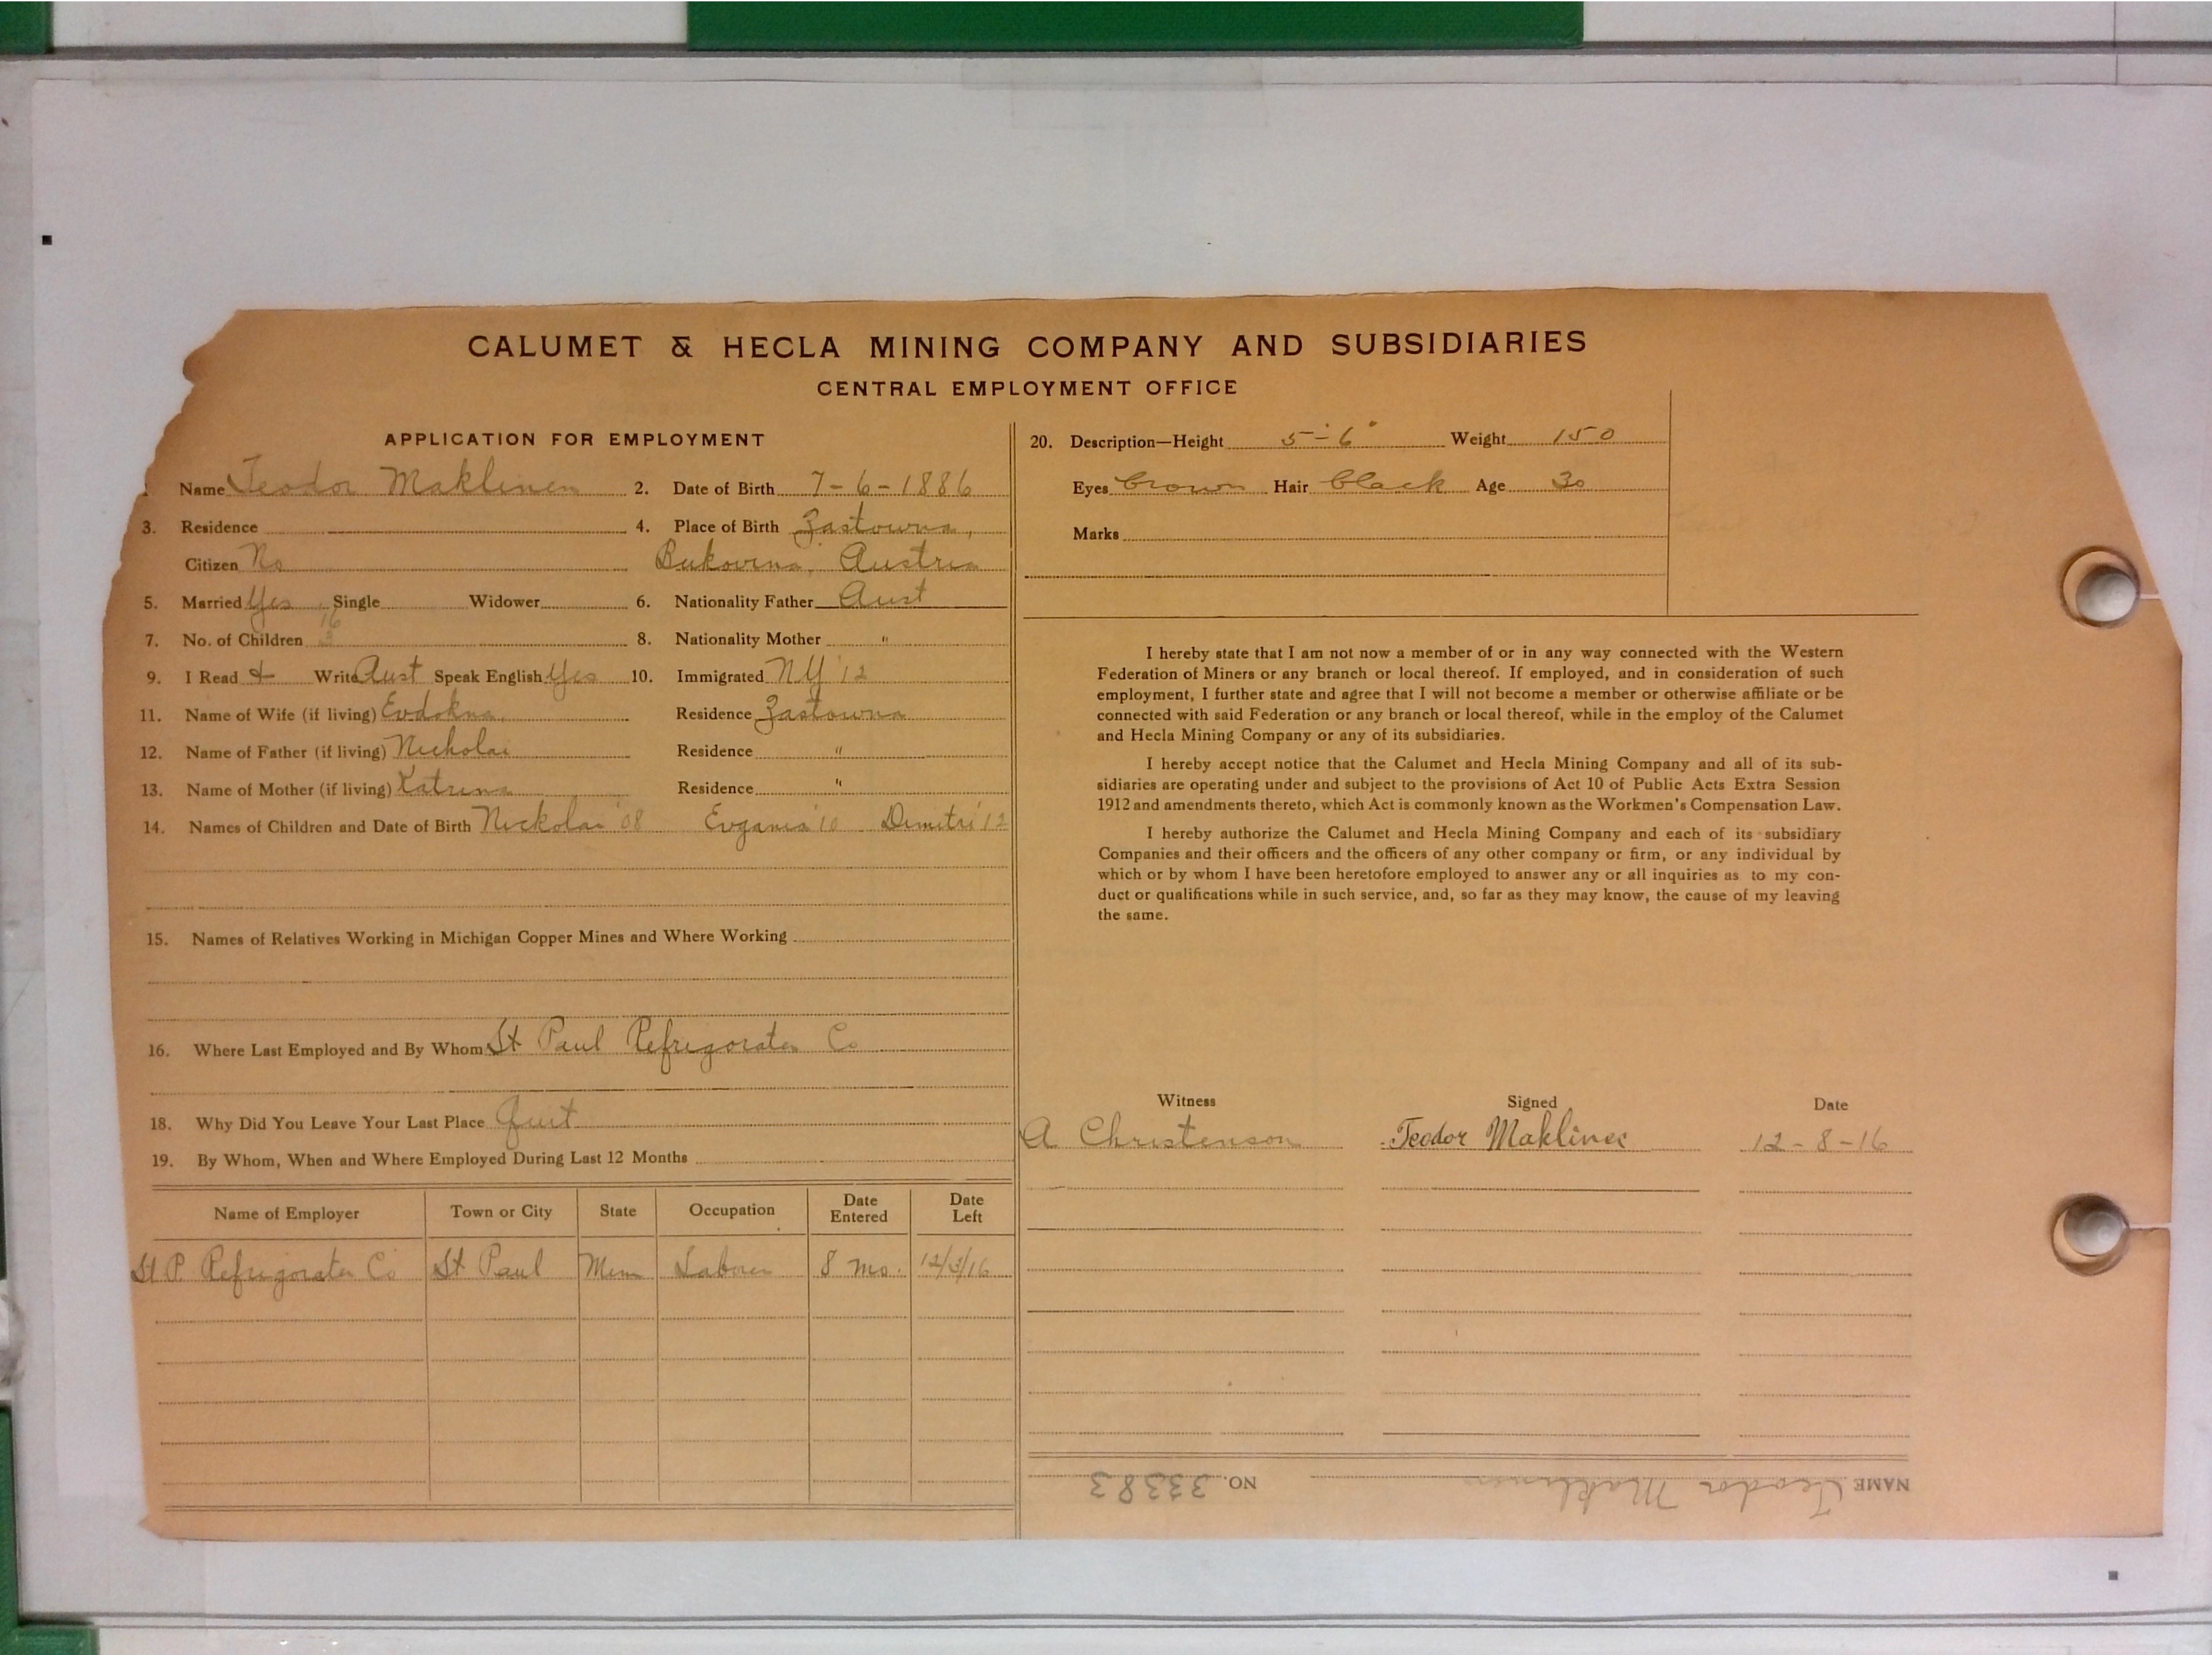 CALUMET & HECLA MINING COMPANY AND SUBSIDIARIES
CENTRAL EMPLOYMENT OFFICE
APPLICATION FOR EMPLOYMENT
Name Teodor Maklinen 2. Date of Birth 7-6-1886
3. Residence 4. Place of Birth Zastowna,
Citizen No Bukovina, Austria
5. Married Yes Single Widower 6. Nationality Father Aust
16
7. No. of Children 3 8. Nationality Mother "
9. I Read & Write Aust Speak English Yes 10. Immigrated NY '12
11. Name of Wife (if living) Evdokna Residence Zastowna
12. Name of Father (if living) Nicholai Residence "
13. Name of Mother (if living) Katrina Residence "
14. Names of Children and Date of Birth Nickolai '08 Evgania '10 Dimitri '12
15. Names of Relatives Working in Michigan Copper Mines and Where Working
16. Where Last Employed and By Whom St Paul Refrigorater Co
18. Why Did You Leave Your Last Place Quit
19. By Whom, When and Where Employed During Last 12 Months
Name of Employer Town or City State Occupation Date Entered Date Left
St P. Refrigorater Co St Paul Minn Laborer 8 mo. 12/3/16
20. Description—Height 5-6" Weight 150
Eyes brown Hair black Age 30
Marks
I hereby state that I am not now a member of or in any way connected with the Western
Federation of Miners or any branch or local thereof. If employed, and in consideration of such
employment, I further state and agree that I will not become a member or otherwise affiliate or be
connected with said Federation or any branch or local thereof, while in the employ of the Calumet
and Hecla Mining Company or any of its subsidiaries.
I hereby accept notice that the Calumet and Hecla Mining Company and all of its sub-
sidiaries are operating under and subject to the provisions of Act 10 of Public Acts Extra Session
1912 and amendments thereto, which Act is commonly known as the Workmen's Compensation Law.
I hereby authorize the Calumet and Hecla Mining Company and each of its subsidiary
Companies and their officers and the officers of any other company or firm, or any individual by
which or by whom I have been heretofore employed to answer any or all inquiries as to my con-
duct or qualifications while in such service, and, so far as they may know, the cause of my leaving
the same.
Witness Signed Date
A Christenson Teodor Maklinec 12-8-16
NAME Teodor Maklinen NO. 33383